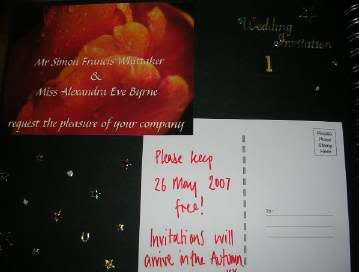 Wedding
Invitation
1
Mr Simon Francis Whittaker
&
Miss Alexandra Eve Byrne
request the pleasure of your company
Please keep
26 May 2007
free!
Invitations will
arrive in the Autumn
xx
Please
Stamp
To: